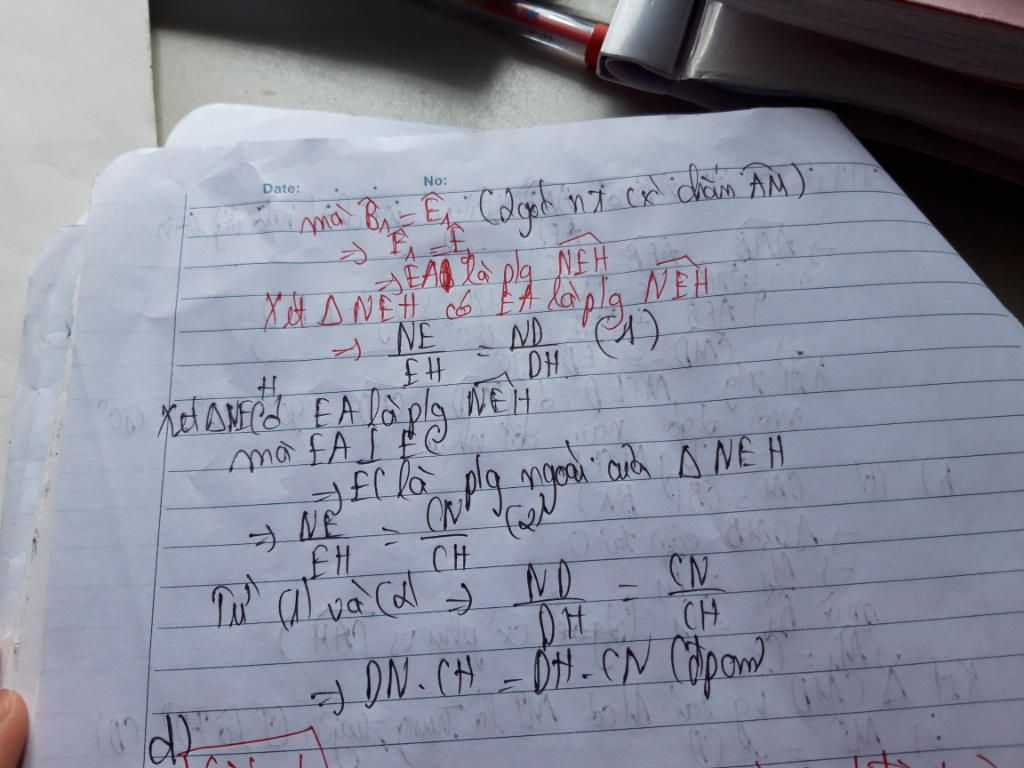 Date: No:
mà B̂₁ = Ê₁ (2 góc nt cx chắn AM)
=> Ê₁ = Ê₂
=> EA là p/g NEH
Xét Δ NEH có EA là p/g NEH
=> NE/EH = ND/DH (1)
Xét ΔNEH có EA là p/g NEH
mà EA ⊥ EC
=> EC là p/g ngoài của Δ NEH
=> NE/EH = CN/CH (2)
Từ (1) và (2) => ND/DH = CN/CH
=> DN . CH = DH . CN (đpcm)
d)